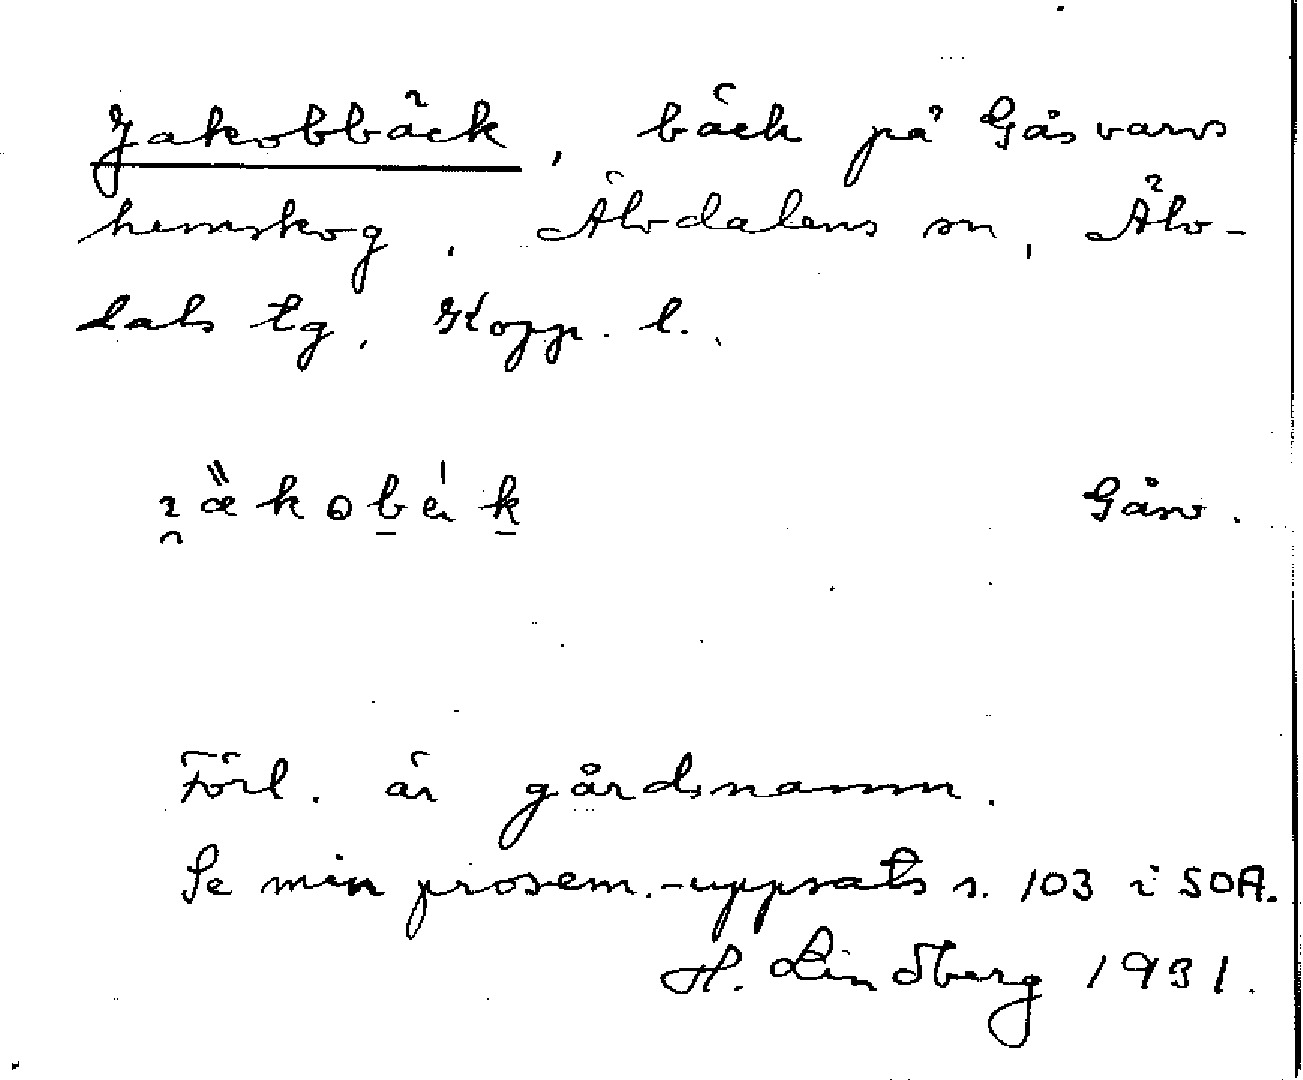 Jakobbäck, bäck på Gåsvarvs
hemskog, Älvdalens sn, Älv-
dals tg, Kopp. l.,
Gåsv.
Förl. är gårdsnamn.
Se min prosem.-uppsats s. 103 i SOA.
H. Lindberg 1931.